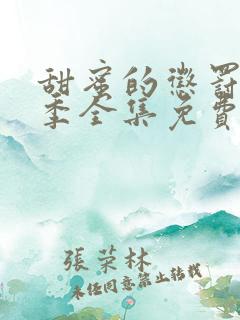 甜蜜的懲罰
季全集免費
張荣林
未任同意禁止转載